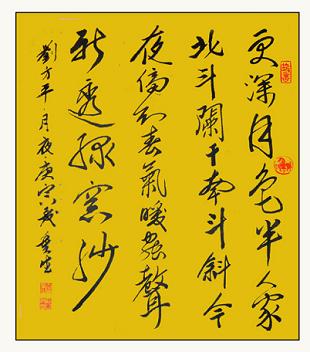 更深月色半人家
北斗闌干南斗斜今
夜偏知春氣暖蟲聲
新透綠窓紗
劉方平月夜庚寅